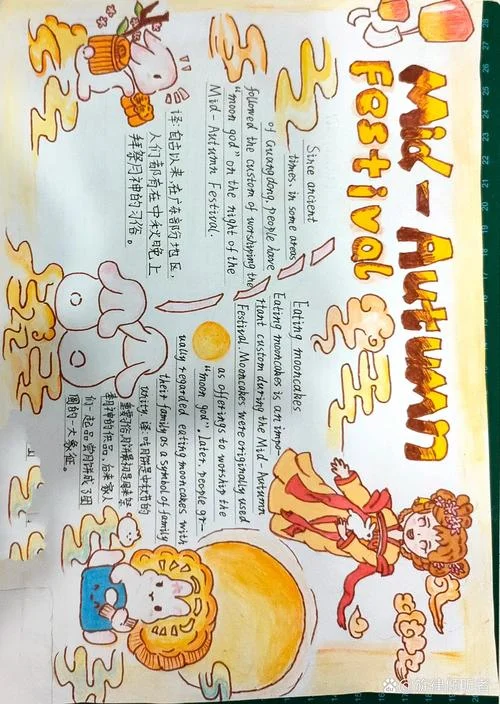 Mid-Autumn
Festival
Since ancient
times, in some areas
of Guangdong, people have
followed the custom of worshiping the
"moon god" on the night of the
Mid-Autumn Festival.
译:自古以来,在广东部分地区,
人们都有在中秋晚上
拜祭月神的习俗。
Eating mooncakes
Eating mooncakes is an impo-
rtant custom during the Mid-Autumn
Festival. Mooncakes were originally used
as offerings to worship the
"moon god". Later, people gr-
ually regarded eating mooncakes with
their family as a symbol of family
unity. 译:吃月饼是中秋节的
重要习俗,月饼最初是用来祭
神的供品,后来家人
们一起品尝月饼成了团
圆的一大象征。
山
旋律倾听者